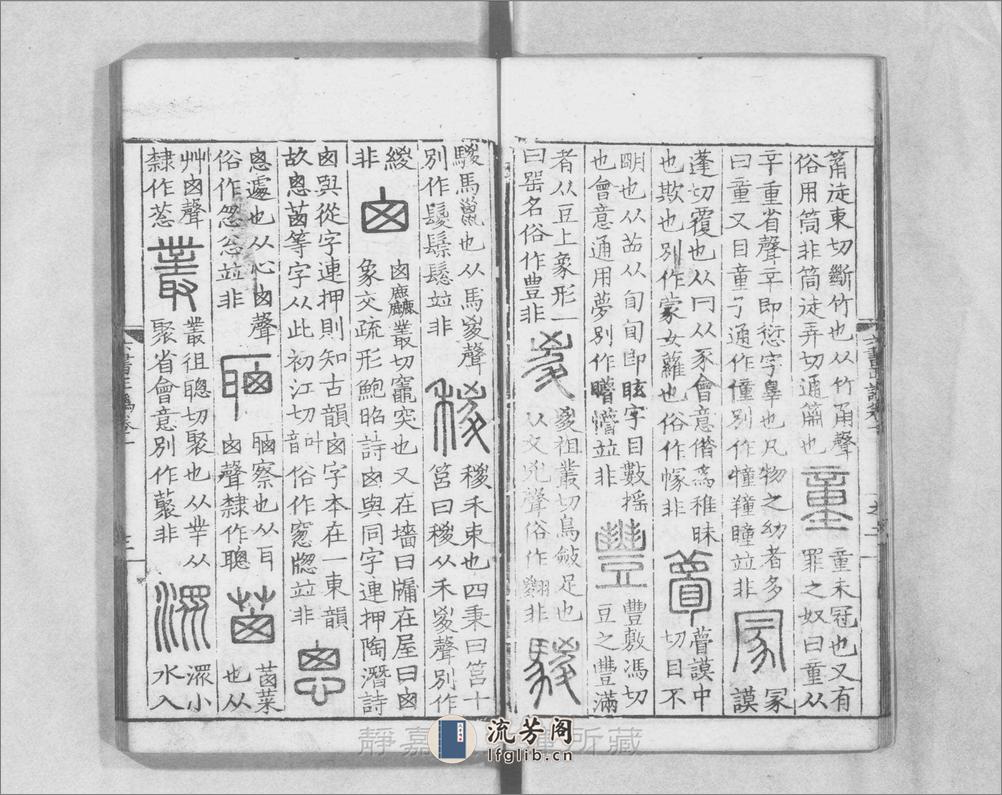 筩徒東切斷竹也从竹甬聲
俗用筒非筒徒弄切通簫也
童
童未冠也又有
罪之奴曰童从
䇂重省聲䇂即愆字辠也凡物之幼者多
曰童又目童子通作僮別作憧䍶瞳竝非
冡
冡
謨
蓬切覆也从冃从豕會意借爲稚昧
也欺也別作蒙女蘿也俗作幪非
瞢
瞢謨中
切目不
明也从苜从旬旬即眩字目數搖
也會意通用夢別作矒懵竝非
豐
豐敷馮切
豆之豐滿
者从豆上象形一
曰器名俗作豊非
㚇
㚇祖叢切鳥斂足也
从夊兇聲俗作翪非
騣
騣馬鬣也从馬㚇聲
別作鬉騌鬆竝非
稯
稯禾束也四秉曰筥十
筥曰稯从禾㚇聲別作
緵
非
囪
囪麤叢切竈突也又在墻曰牖在屋曰囪
象交疏形鮑昭詩囪與同字連押陶潛詩
囪與從字連押則知古韻囪字本在一東韻
故悤䓗等字从此初江切音叶俗作窻牕竝非
悤
悤遽也从心囪聲
俗作怱忩竝非
聰
聰察也从耳
囪聲隸作聰
䓗
䓗菜
也从
艸囪聲
隸作葱
叢
叢祖聰切聚也从丵从
聚省會意別作藂非
潀
潀小
水入
六書正譌卷一
静嘉堂文庫所藏
流芳阁
lfglib.cn